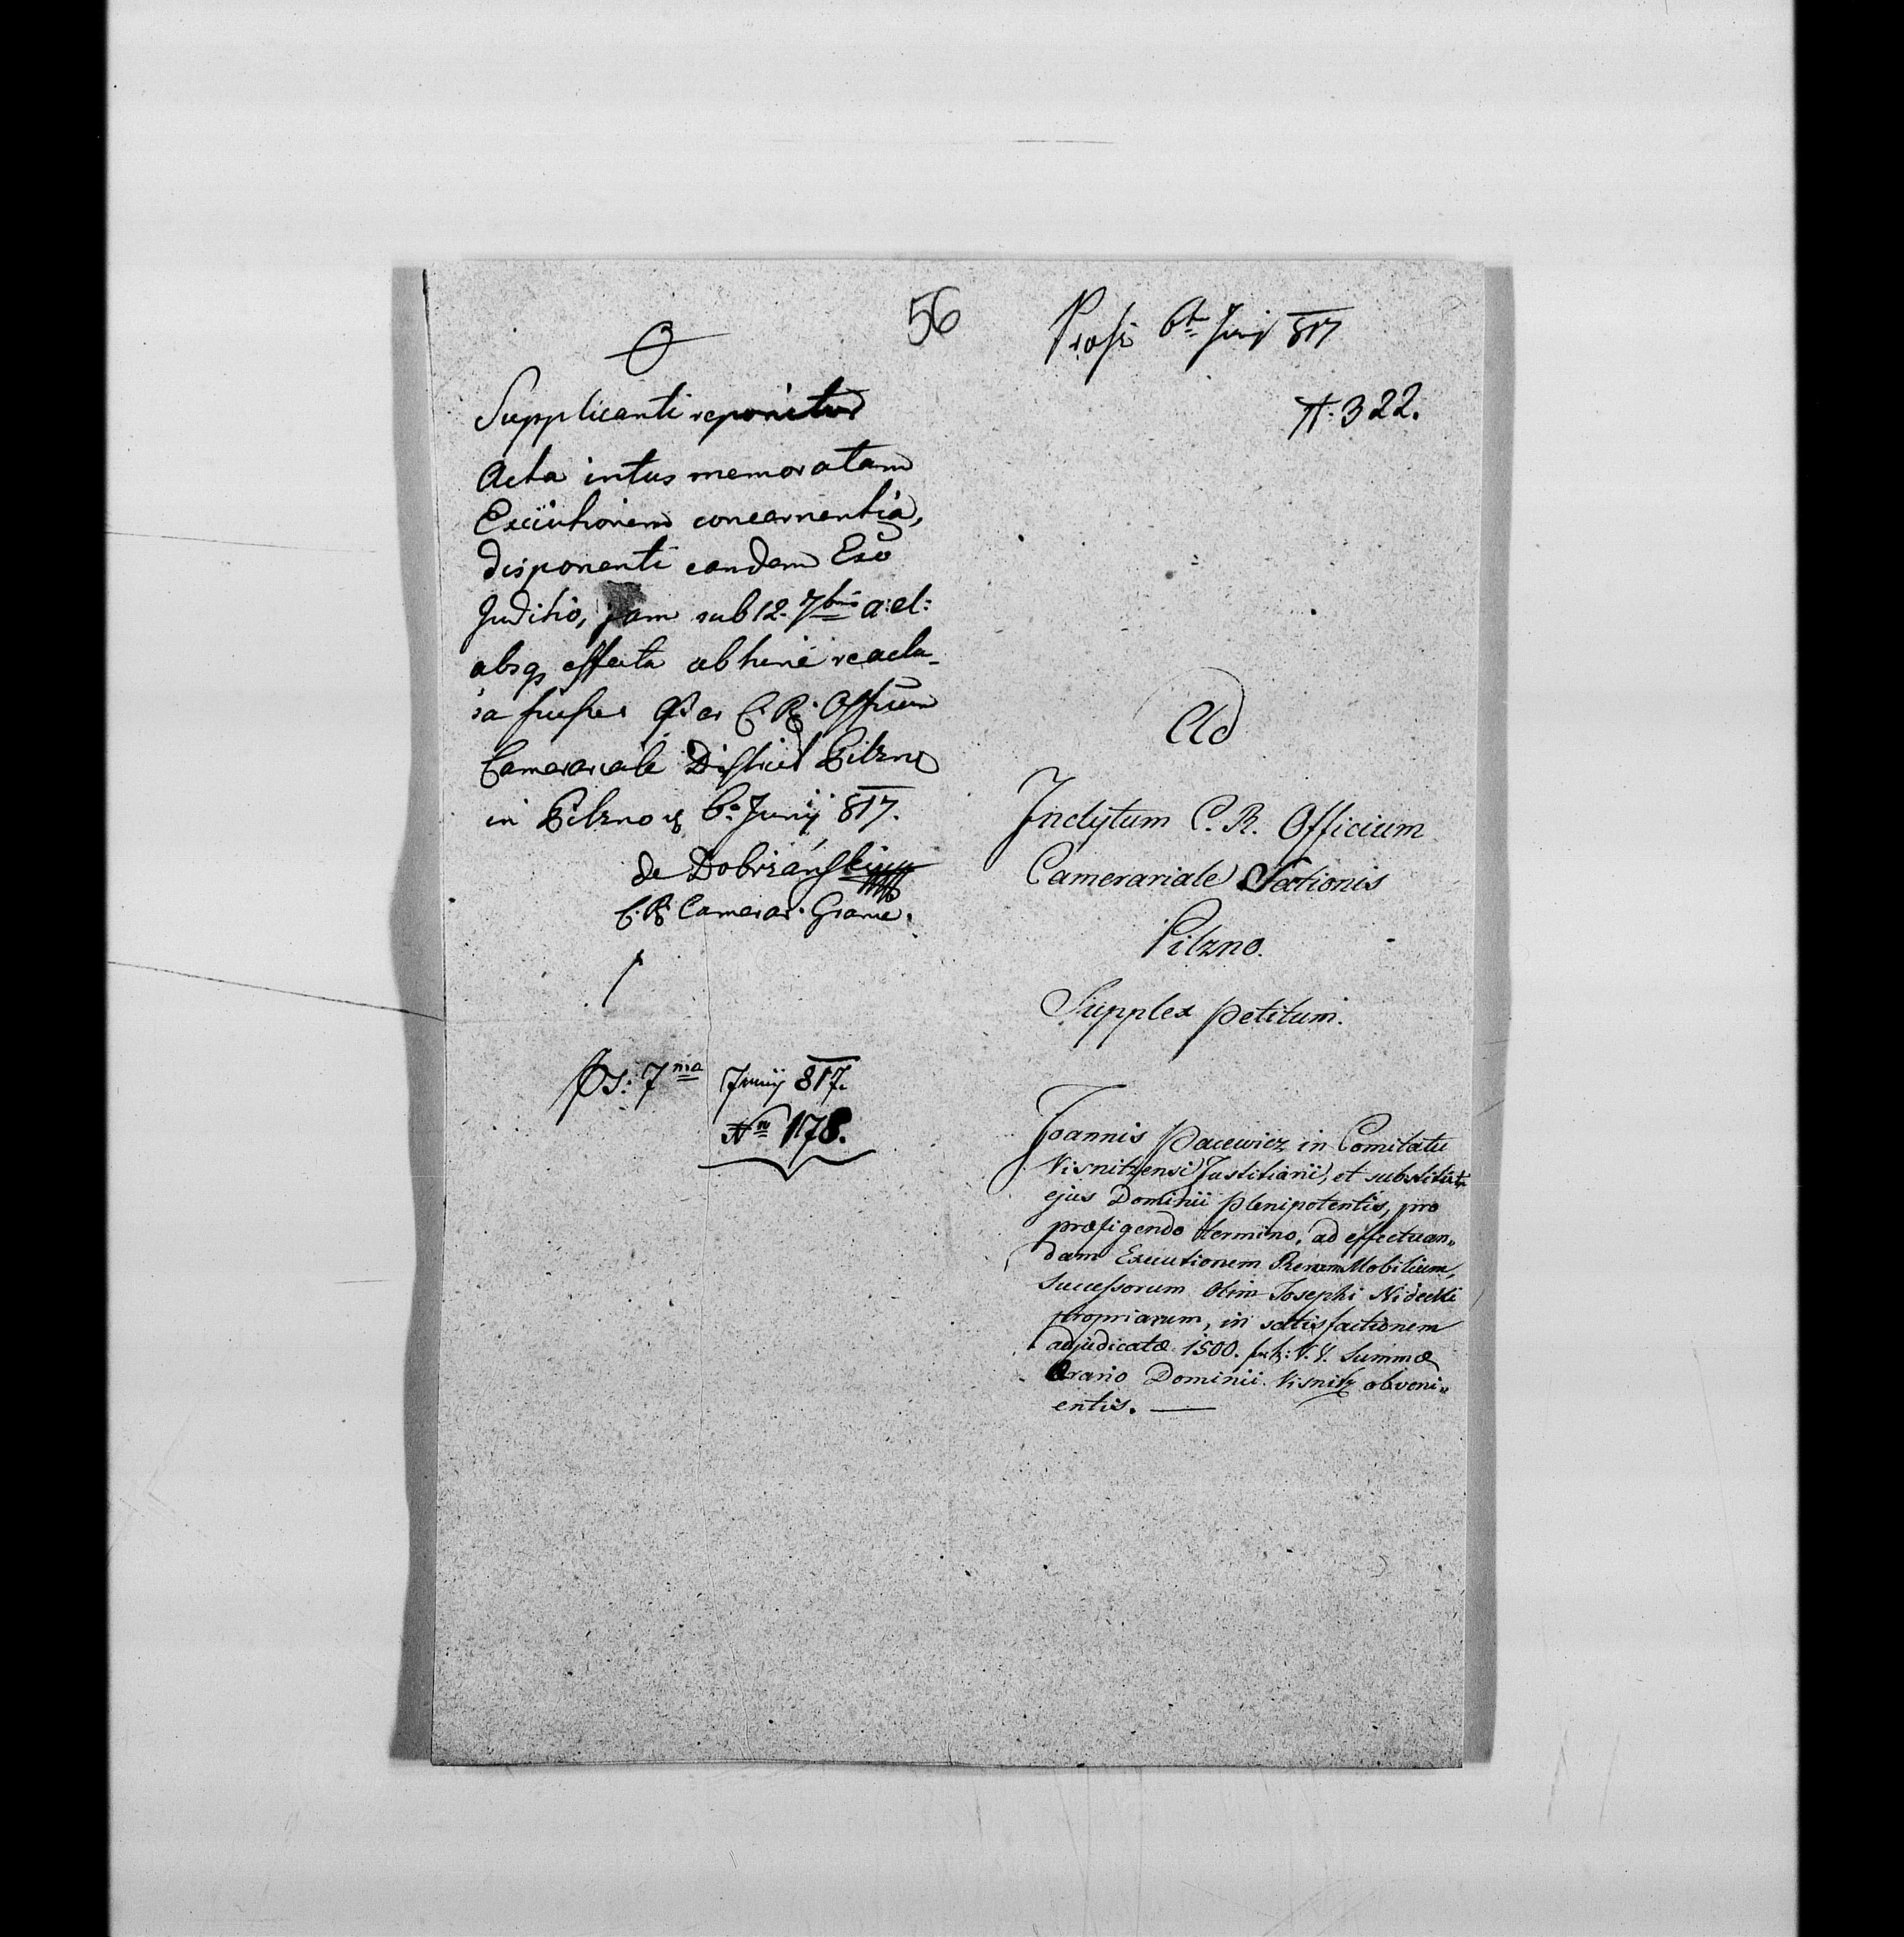 56
Supplicanti reponitur
Acta intus memoratam
Executionem concernentia,
disponenti eandem Exo
Juditio, jam sub 12. 7bris a: el:
absq effectu abhinc reacla-
C. R. Officium
Camerariale District Pilzno
in Pilzno 6a Junij 817.
de Dobrzański
C. R. Camerar. Granic.
Ps: 7ma Junij 817.
Nro 178.
6ta Junij 817
N: 322.
Ad
Inclytum C. R. Officium
Camerariale Sectionis
Pilzno.
Supplex petitum.
Joannis Pacewicz in Comitatu
Visnitzensi Justitiarii, et substituti
ejus Dominii plenipotentis, pro
præfigendo termino, ad effectuan„
dam Executionem Rerum Mobilium,
Successorum Olim Josephi Nidecki
propriarum, in satisfactionem
adjudicatæ 1500. V. V. Summæ
Ærario Dominii Visnitz obveni„
entis. —